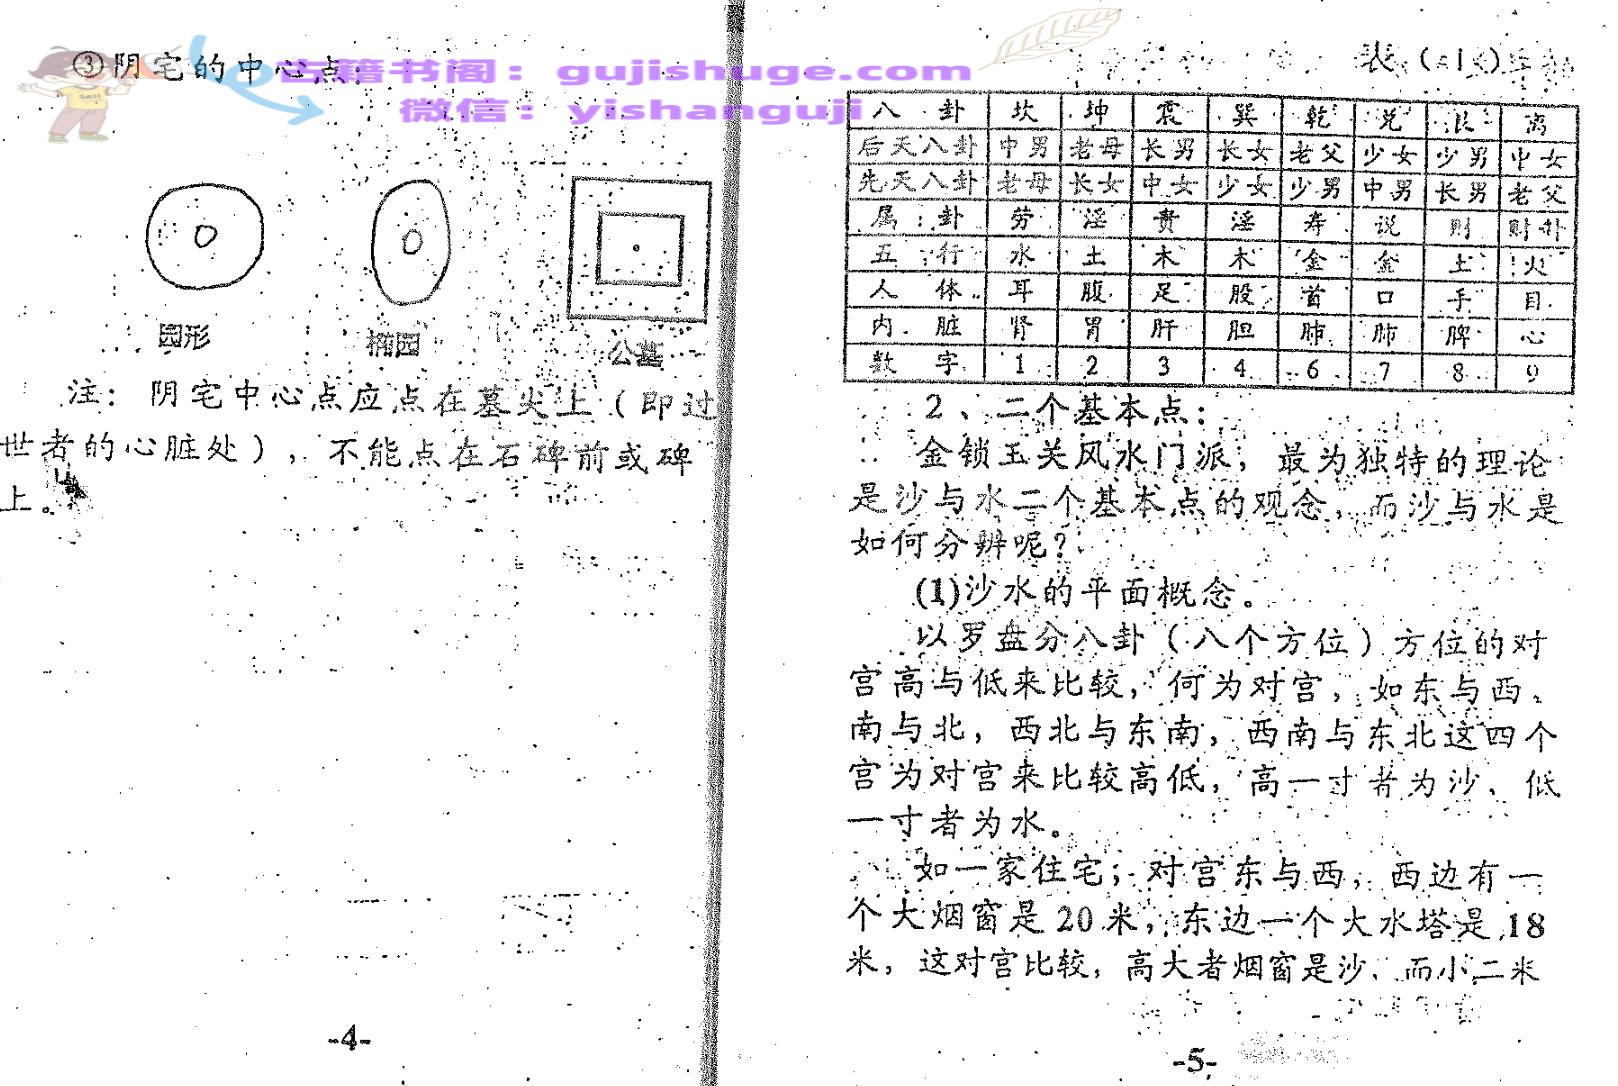 ③阴宅的中心点：
古籍书阁：gujishuge.com
微信：yishanguji
园形
椭园
公墓
注：阴宅中心点应点在墓穴上（即过
世者的心脏处），不能点在石碑前或碑
上。
-4-
表（1）
八卦 坎 坤 震 巽 乾 兑 艮 离
后天八卦 中男 老母 长男 长女 老父 少女 少男 中女
先天八卦 老母 长女 中女 少女 少男 中男 长男 老父
属卦 劳 淫 贵 淫 寿 说 财卦
五行 水 土 木 木 金 金 土 火
人体 耳 腹 足 股 首 口 手 目
内脏 肾 胃 肝 胆 肺 肺 脾 心
数字 1 2 3 4 6 7 8 9
2、二个基本点：
金锁玉关风水门派，最为独特的理论
是沙与水二个基本点的观念，而沙与水是
如何分辨呢？
(1)沙水的平面概念。
以罗盘分八卦（八个方位）方位的对
宫高与低来比较，何为对宫，如东与西、
南与北，西北与东南，西南与东北这四个
宫为对宫来比较高低，高一寸者为沙、低
一寸者为水。
如一家住宅；对宫东与西，西边有一
个大烟窗是20米，东边一个大水塔是18
米，这对宫比较，高大者烟窗是沙、而小二米
-5-